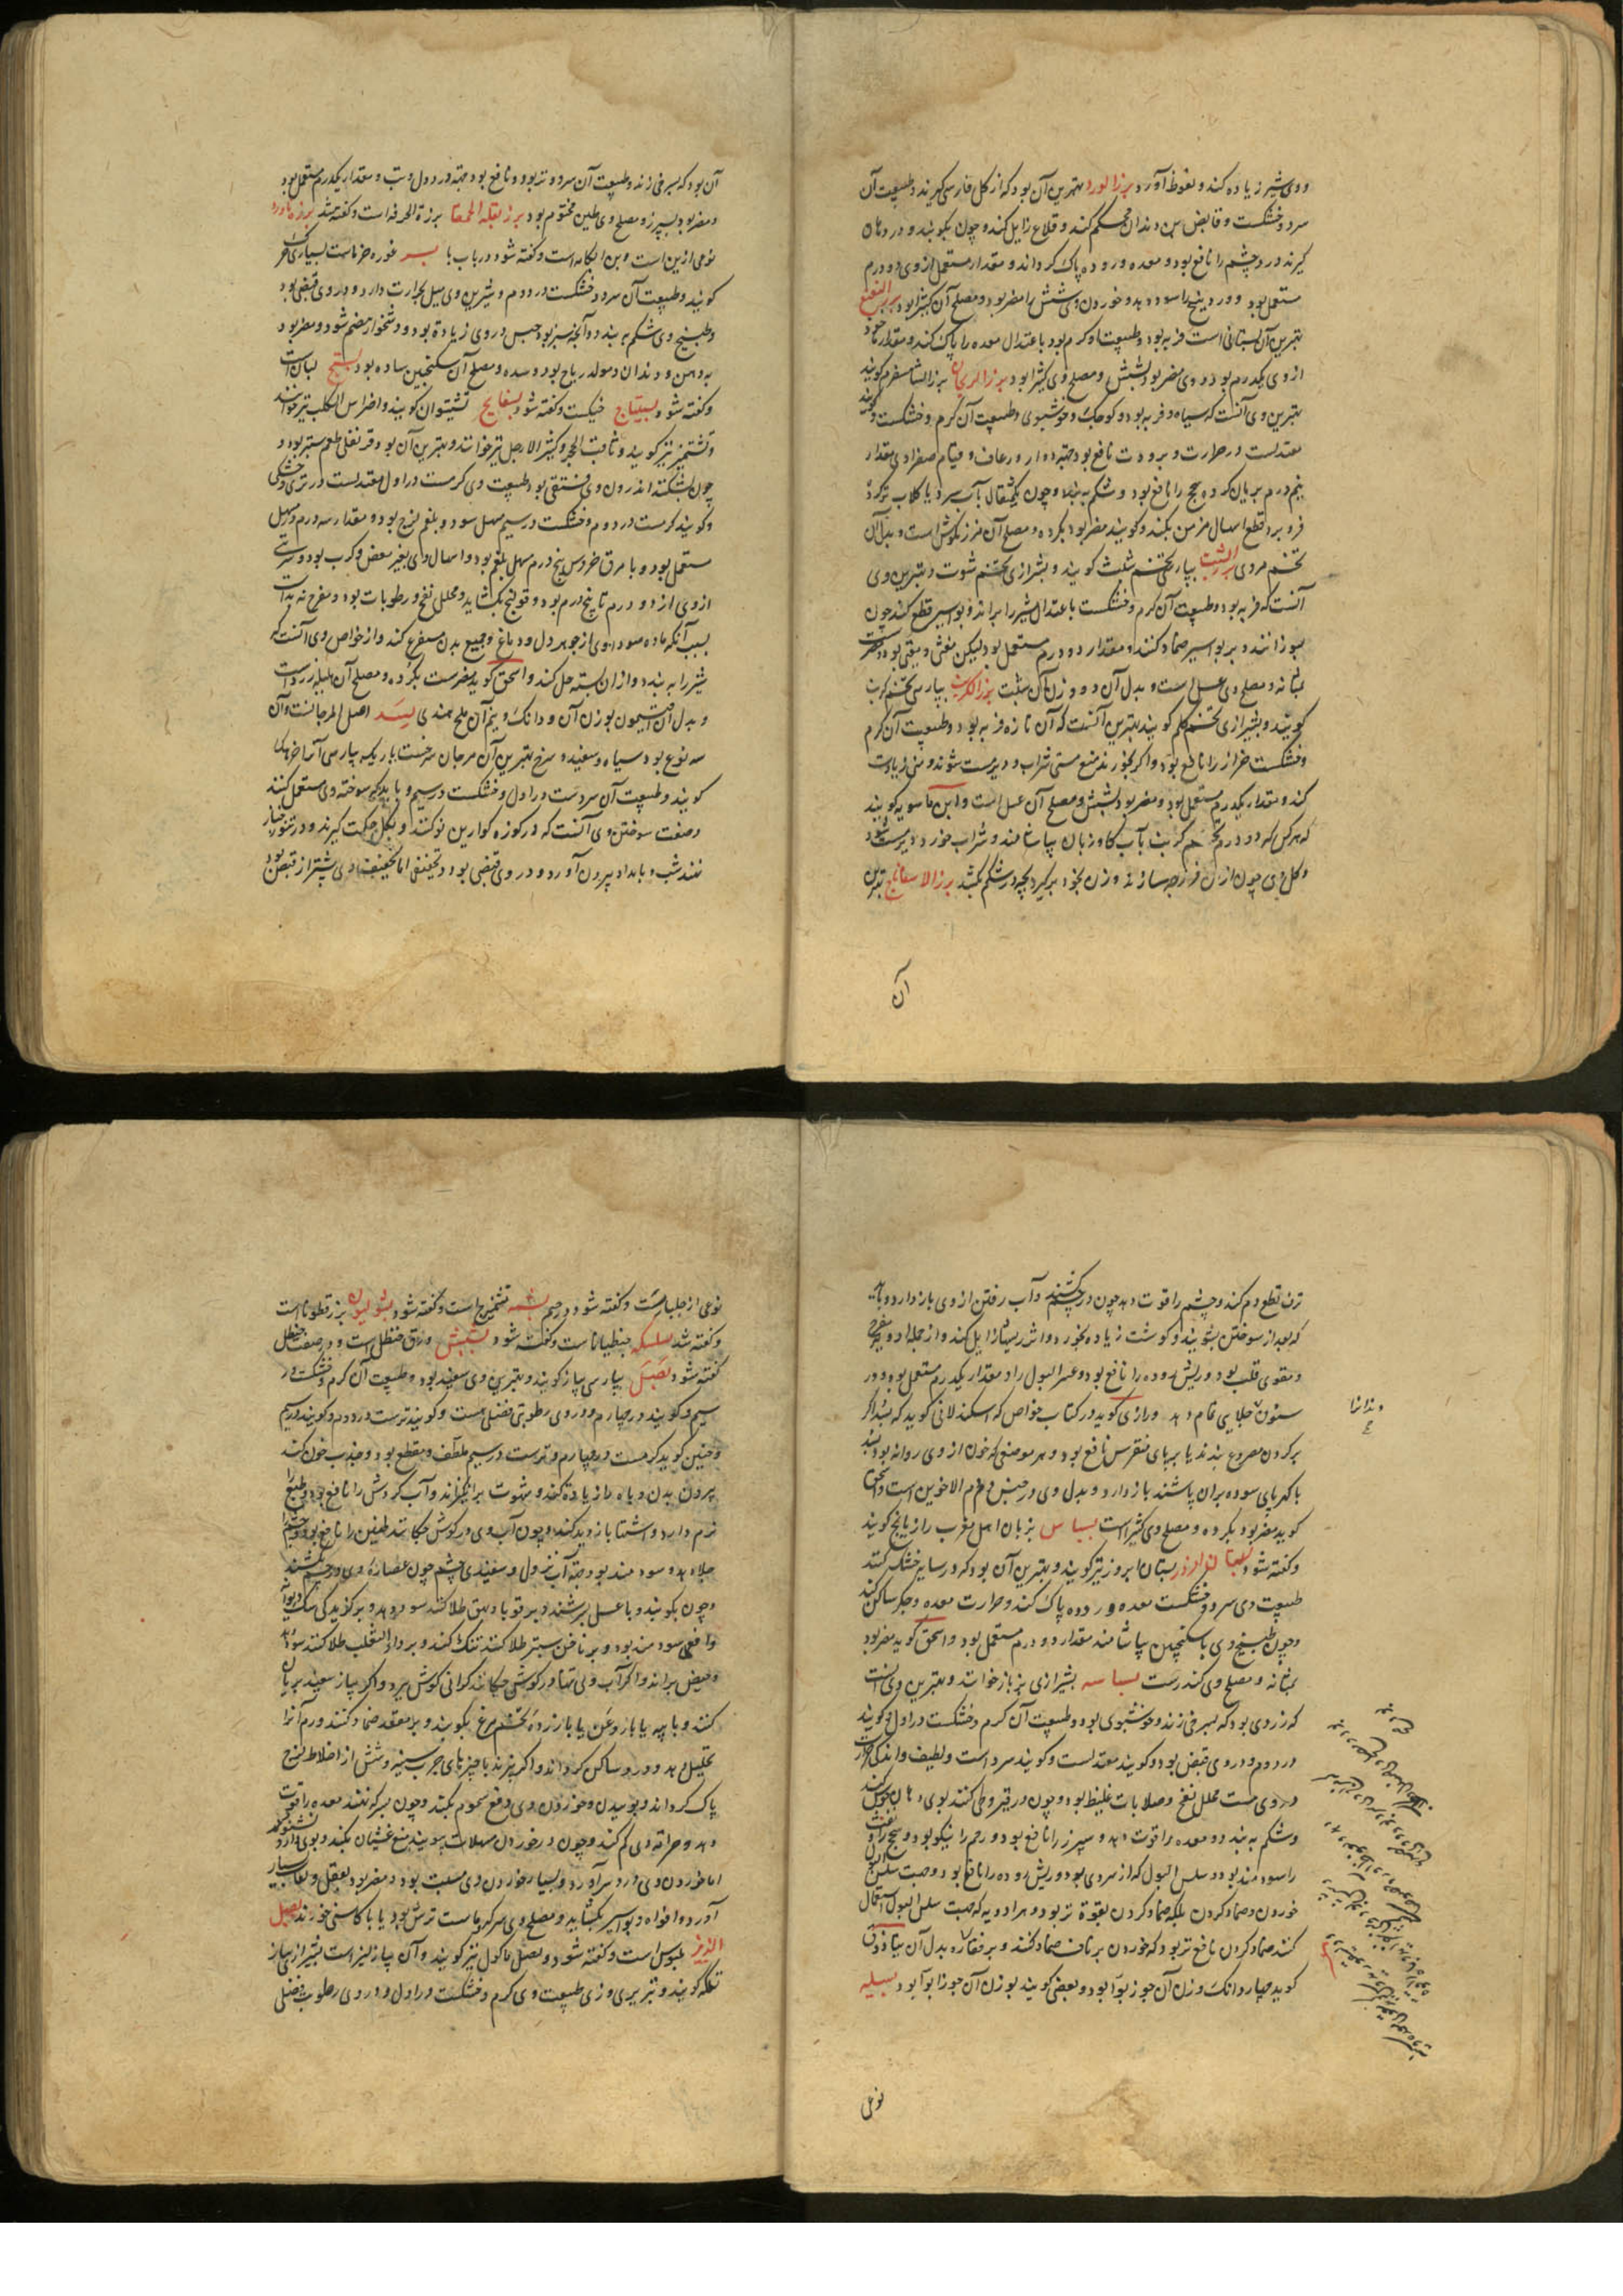 ووی شیر زیاده کند و نعوظ آورد بزر الورد بهترین آن بود که از گل فارسی گیرند و طبیعت آن
سرد و خشکست و قابض بن دندان محکم کند و قلاع زایل کند و چون بکوبند و در دهان
گیرند درد چشم را نافع بود و معده و روده پاک گرداند و مقدار مستعمل از وی دو درم
مستعمل بود و خوردن وی شش را مضر بود و مصلح آن کثیرا بود
بهترین آن بستانی است فربه بود و طبیعت او گرم بود باعتدال معده را پاک کند و مقدار ماخوذ
از وی یکدرم بود و وی مضر بود بشش و مصلح وی کثیرا بود بزر الریحان بزر الشاهسفرم گویند
بهترین وی آنست که سیاه و فربه بود و کوچک و خوشبوی و طبیعت آن گرم و خشکست و گویند
معتدلست در حرارت و برودت نافع بود جهة دوار و رعاف و قیام صفراوی مقدار
نیم درم بریان کرده سحج را نافع بود و شکم به بندد و چون یکمثقال بآب سرد یا گلاب تر کرده
فرو برد قطع اسهال مزمن بکند و گویند مضر بود بگرده و مصلح آن مرزنکوش است و بدل آن
تخم مرو بزر الشبت بپارسی تخم شبت گویند و بشیرازی تخم شوت و بهترین وی
آنست که فربه بود و طبیعت آن گرم و خشکست باعتدال شیر را براند و بواسیر قطع کند چون
بسوزانند و بر بواسیر ضماد کنند و مقدار دو درم مستعمل بود لیکن مغثی و مقی بود و مضرست
بمثانه و مصلح وی عسل است و بدل آن دو وزن آن شبت بزر الکرنب بپارسی تخم کرنب
گویند و بشیرازی تخم کلم گویند بهترین آنست که آن تازه و فربه بود و طبیعت آن گرم
و خشکست حزاز را نافع بود و اگر بخورند منع مستی شراب و دیر مست شوند و منی زیادت
کند و مقدار یکدرم مستعمل بود و مضر بود بشش و مصلح آن عسل است و ابن ماسویه گوید
که هر کس که دو درم تخم کرنب بآب گاوزبان بیاشامند و شراب خورد دیر مست شود
و گل وی چون از آن فرزجه سازند و زن بخود برگیرد بچه در شکم بکشد بزر الاسفاناج بهترین
آن
آن بود که بسرخی زند و طبیعت آن سرد و تر بود و نافع بود جهة درد دل و تب و مقدار یکدرم مستعمل بود
و مضر بود بسپرز و مصلح وی طین مختوم بود بزر بقلة الحمقا بزرة الخرفه است و گفته شد
نوعی ازین است و بن انکاماست و گفته شود در باب با بسر غوره خرماست بسیاری
گویند و طبیعت آن سرد و خشکست در دوم و شیرین وی میل بحرارت دارد و در وی قبضی بود
و طبیخ وی شکم به بندد و آنچه سبز بود حبس در وی زیاده بود و دشخوار هضم شود و مضر بود
بدهن و دندان و مولد ریاح بود و سده و مصلح آن سکنجبین ساده بود بستج لبان است
و گفته شود بسیتاج خیکست و گفته شود بسفایج تشتیوان گویند و اضراس الکلب نیز خوانند
و تشتمیز نیز گویند و ثاقب الحجر و کثیر الارجل نیز خوانند و بهترین آن بود قرنفلی طعم ستبر بود و
چون بشکنند اندرون وی فستقی بود و طبیعت وی گرمست در اول معتدلست در تری و خشکی
و گویند گرمست در دوم و خشکست در سیم مسهل سودا و بلغم لزج بود و مقدار سه درم
مستعمل بود و با مرق خروس پنج درم مسهل بلغم بود و اسهال وی بغیر مغص و کرب بود و شربتی
از وی از دو درم تا پنج درم بود و قولنج بگشاید و محلل نفخ و رطوبات بود و مفرح نه بذات
بسبب آنکه ماده سوداوی از جوهر دل و دماغ و جمیع بدن مستفرغ کند و از خواص وی آنست که
شیر را به بندد و از آن بسته حل کند و اسحق گوید مضرست بگرده و مصلح آن هلیله زردست
و بدل آن افتیمون بوزن آن و دانک و نیم آن ملح هندی بسد اصل المرجانست و آن
سه نوع بود سیاه و سفید و سرخ بهترین آن مرجان سرخست باریک بپارسی آنرا خروهک
گویند و طبیعت آن سردست در اول و خشکست در سیم و باید که سوخته وی مستعمل کنند
و صفت سوختن وی آنست که در کوزه گوارین نو کنند و بگل حکمت گیرند و در تنور خباز
نهند شب و بامداد بیرون آورد و در وی قبضی بود و تجفیفی اما تجفیف وی بیشتر از قبض بود
ترف قطع دم کند و چشم را قوت دهد چون در چشم کشند و آب رفتن از وی باز دارد و باید
که بعد از سوختن بشویند و گوشت زیاده بخورد و اثر ریشها زایل کند و از جمله ادویه مفرح
و مقوی قلب بود و ریش روده را نافع بود و عسر البول را و مقدار یکدرم مستعمل بود و در
سنون جلایی تمام دهد و رازی گوید در کتاب خواص که اسکندر لانی گوید که بسد اگر
بر گردن مصروع بندند یا بر پای منقرس نافع بود و هر موضعی که خون از وی روانه بود بسد
با کهربای سوده بران پاشند باز دارد و بدل وی در حبس دم دم الاخوین است و اسحق
گوید مضر بود بگرده و مصلح وی کثیراست بسباس بزبان اهل مغرب رازیانج گویند
و گفته شود بستان افروز بستان ابروز نیز گویند و بهترین آن بود که در سایه خشک کنند
طبیعت وی سرد و خشکست معده و روده پاک کند و حرارت معده و جگر ساکن کند
و چون طبیخ وی با سکنجبین بیاشامند مقدار دو درم مستعمل بود و اسحق گوید مضر بود
بمثانه و مصلح وی کندرست بسباسه بشیرازی بزباز خوانند و بهترین وی آنست
که زردی بود که بسرخی زند و خوشبوی بود و طبیعت آن گرم و خشکست در اول و گویند
در دوم و در وی قبض بود و گویند معتدلست و گویند سرد است و لطیف و اندکی حرارت
در وی هست محلل نفخ و صلابات غلیظ بود و چون در قیروطی کنند بوی دهان خوش کند
و شکم به بندد و معده را قوت دهد و سپرز را نافع بود و رحم را نیکو بود و سحج را و نفث
را سودمند بود و سلس البول که از سردی بود و ریش روده را نافع بود و جهت سلس البول
خوردن و ضماد کردن بلکه ضماد کردن بقوة تر بود و هر ادویه که جهت سلس البول استعمال
کنند ضماد کردن نافع تر بود که خوردن بر ناف ضماد کنند و بر فقاره بدل آن بنادوق
گوید چهار دانک وزن آن جوز بوا بود و بعضی گویند بوزن آن جوز بوا بود بسیله
نوعی
نوعی از جلبانست و گفته شود در جیم بشمه تشمیزج است و گفته شود بشولیون بزر قطوناست
و گفته شد بشلشکه جنطیاناست و گفته شود بشبش ورق حنظل است و در صفت حنظل
گفته شود بصل بپارسی پیاز گویند و بهترین وی سفید بود و طبیعت آن گرم و خشکست در
سیم و گویند در چهارم و در وی رطوبتی فضلی هست و گویند ترست در دوم و گویند در سیم
و حنین گوید گرمست در چهارم و ترست در سیم ملطف و مقطع بود و جذب خون کند
بیرون بدن و باه را زیاده کند و شهوت برانگیزاند و آب گردش را نافع بود و طبع را
نرم دارد و اشتها بازدید کند و چون آب وی در گوش چکانند طنین را نافع بود و چشم را
جلا دهد و سودمند بود جهة آب نزول و سفیدی چشم چون عصاره وی در چشم کشند
و چون بکوبند و با عسل بسرشند و بر قوبا و بهق طلا کنند سود دهد و بر گزیدگی سگ دیوانه
و افعی سودمند بود و بر ناخن سبتر طلا کنند تنک کند و بر داء الثعلب طلا کنند سود دهد
و حیض براند و اگر آب وی تنها در گوش چکانند گرانی گوش ببرد و اگر پیاز سفید بریان
کنند و با پیه یا با روغن یا با زرده تخم مرغ بکوبند و بر مقعد ضماد کنند ورم آنرا
تحلیل دهد و درد ساکن گرداند و اگر بپزند با چیزهای چرب سینه و شش از اخلاط لزج
پاک گرداند و بوییدن و خوردن وی دفع سموم بکند و چون بسرکه نهند معده را قوت
دهد و حرافه وی کم کند و چون در خوردن مسهلات ببویند منع غثیان بکند و بوی دارو
اما خوردن وی درد سر آورد و بسیار خوردن وی مسبت بود و مضر بود بعقل و لعاب بسیار
آورد و افواه بواسیر بگشاید و مصلح وی سرکه و ماست ترش بود یا با کاسنی خورند بصل
الزیز بلبوس است و گفته شود و بصل ماکول نیز گویند و آن پیاز لیز است بشیرازی پیاز
تلکه گویند و تبریری و زی طبیعت وی گرم و خشکست در اول و در وی رطوبت فضلی